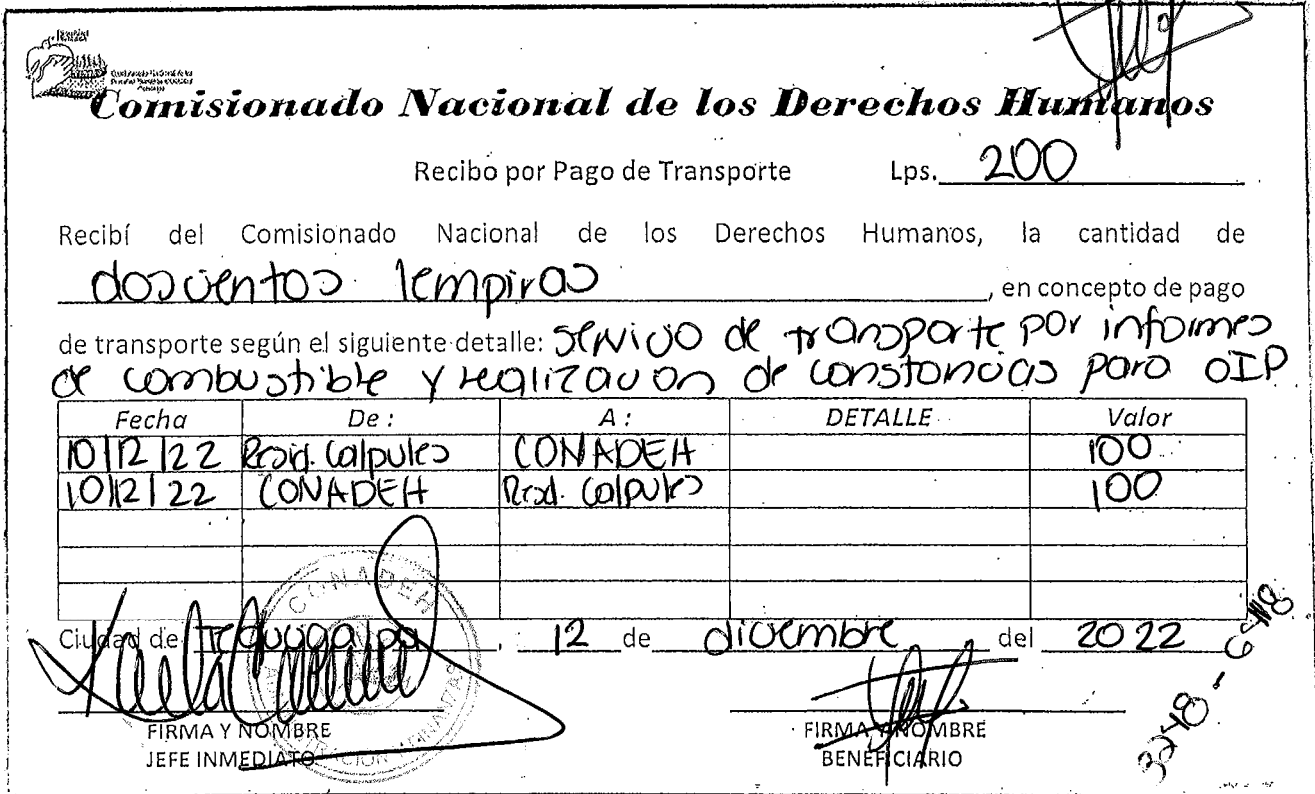 Comisionado Nacional de los Derechos Humanos
Recibo por Pago de Transporte Lps. 200
Recibí del Comisionado Nacional de los Derechos Humanos, la cantidad de
doscientos lempiras, en concepto de pago
de transporte según el siguiente detalle: servicio de transporte por informes
de combustible y realización de constancias para OIP
Fecha De : A : DETALLE Valor
10/12/22 Resid. Calpules CONADEH 100
10/12/22 CONADEH Resd. Calpules 100
CONADEH
Ciudad de Tegucigalpa, 12 de diciembre del 2022
FIRMA Y NOMBRE FIRMA Y NOMBRE
JEFE INMEDIATO BENEFICIARIO